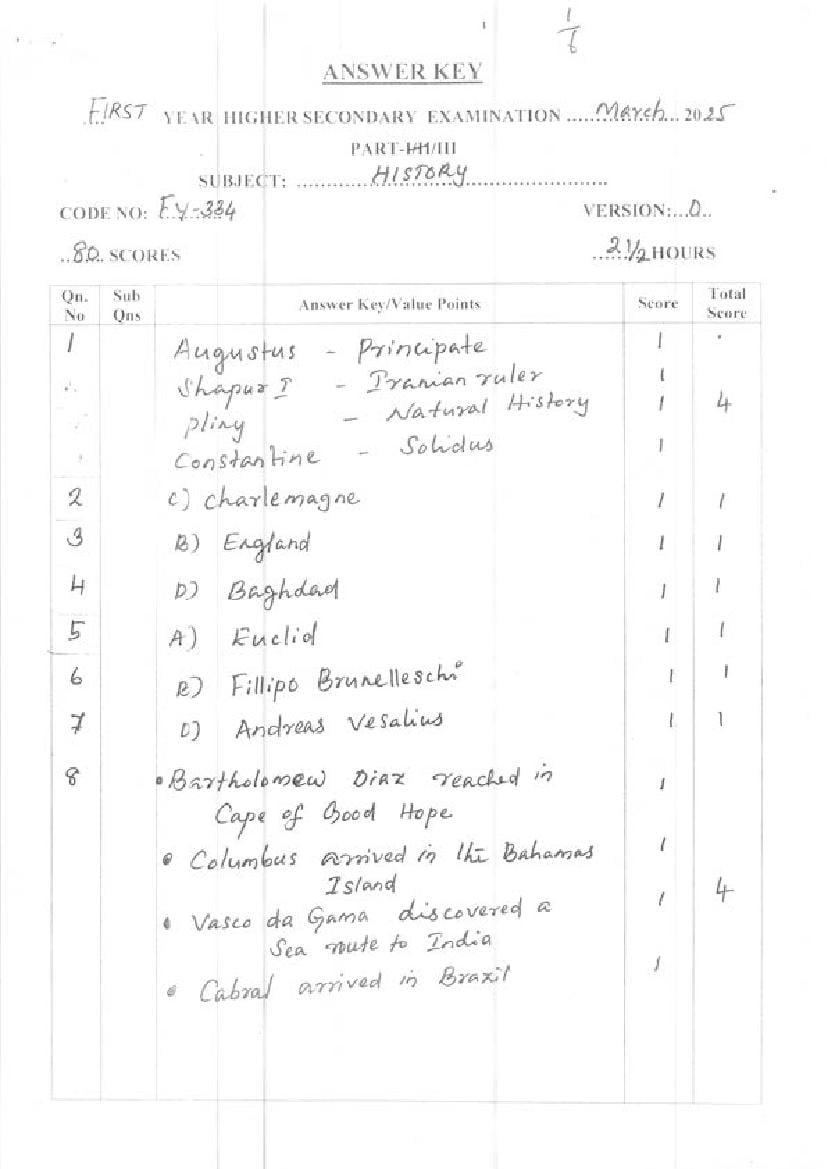 1/6
ANSWER KEY
FIRST YEAR HIGHER SECONDARY EXAMINATION ......March... 2025
PART-I/II/III
SUBJECT: ............HISTORY............
CODE NO: FY-334 VERSION:...0..
..80.. SCORES ..2 1/2 HOURS
Qn. No Sub Qns Answer Key/Value Points Score Total Score
1 Augustus - Principate 1
Shapur I - Iranian ruler 1
Pliny - Natural History 1 4
Constantine - Solidus 1
2 C) Charlemagne 1 1
3 B) England 1 1
4 D) Baghdad 1 1
5 A) Euclid 1 1
6 B) Fillipo Brunelleschi 1 1
7 D) Andreas Vesalius 1 1
8 • Bartholomew Diaz reached in 1
Cape of Good Hope
• Columbus arrived in the Bahamas 1
Island 4
• Vasco da Gama discovered a 1
Sea route to India
• Cabral arrived in Brazil 1